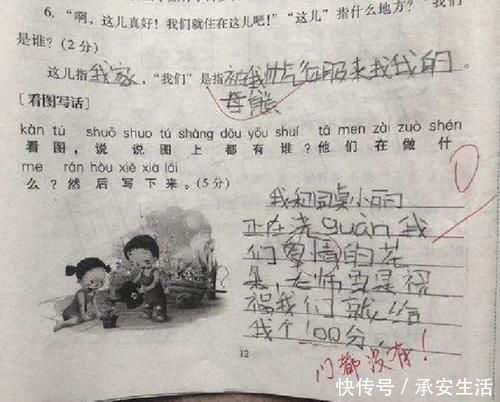 6. “啊，这儿真好！我们就住在这儿吧！”“这儿”指什么地方？“我们”
是谁？(2分)
这儿指我家，“我们”是指被我帅气征服来找我的。
母熊
[看图写话]
kàn tú shuō shuo tú shàng dōu yǒu shuí tā men zài zuò shén
看图，说说图上都有谁？他们在做什
me rán hòu xiě xià lái
么？然后写下来。(5分)
我和同桌小丽
正在浇guàn我
们爱情的花
朵，老师当是祝
福我们就给
我个100分，
门都没有！
12
快传号/承安生活